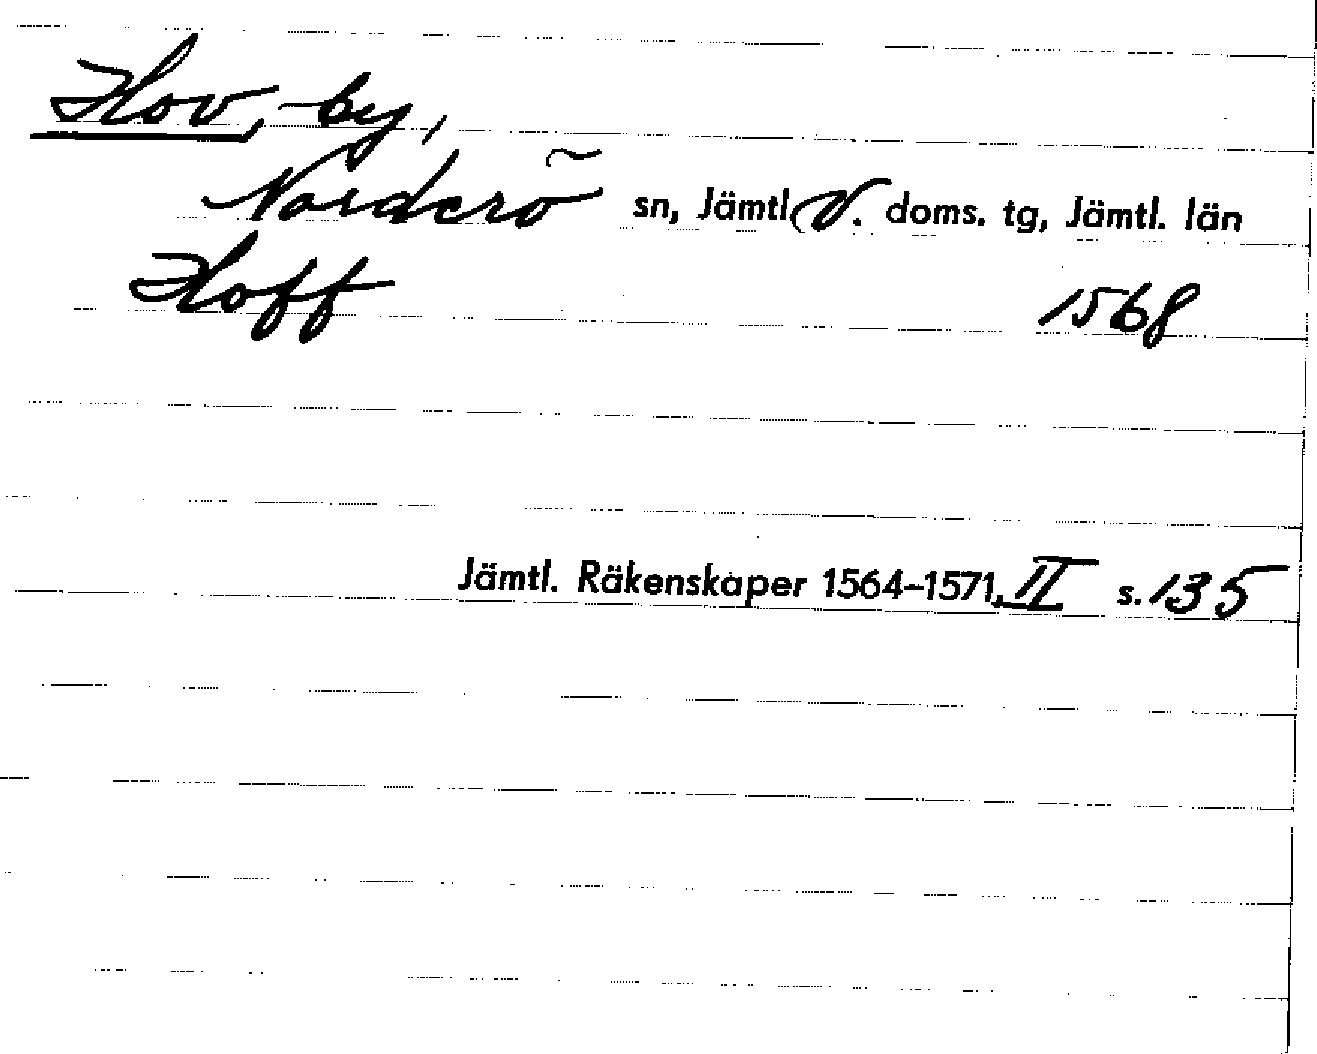 Hov, by,
Norderö sn, Jämtl. V. doms. tg, Jämtl. län
Hoff 1568
Jämtl. Räkenskaper 1564–1571, II s. 135